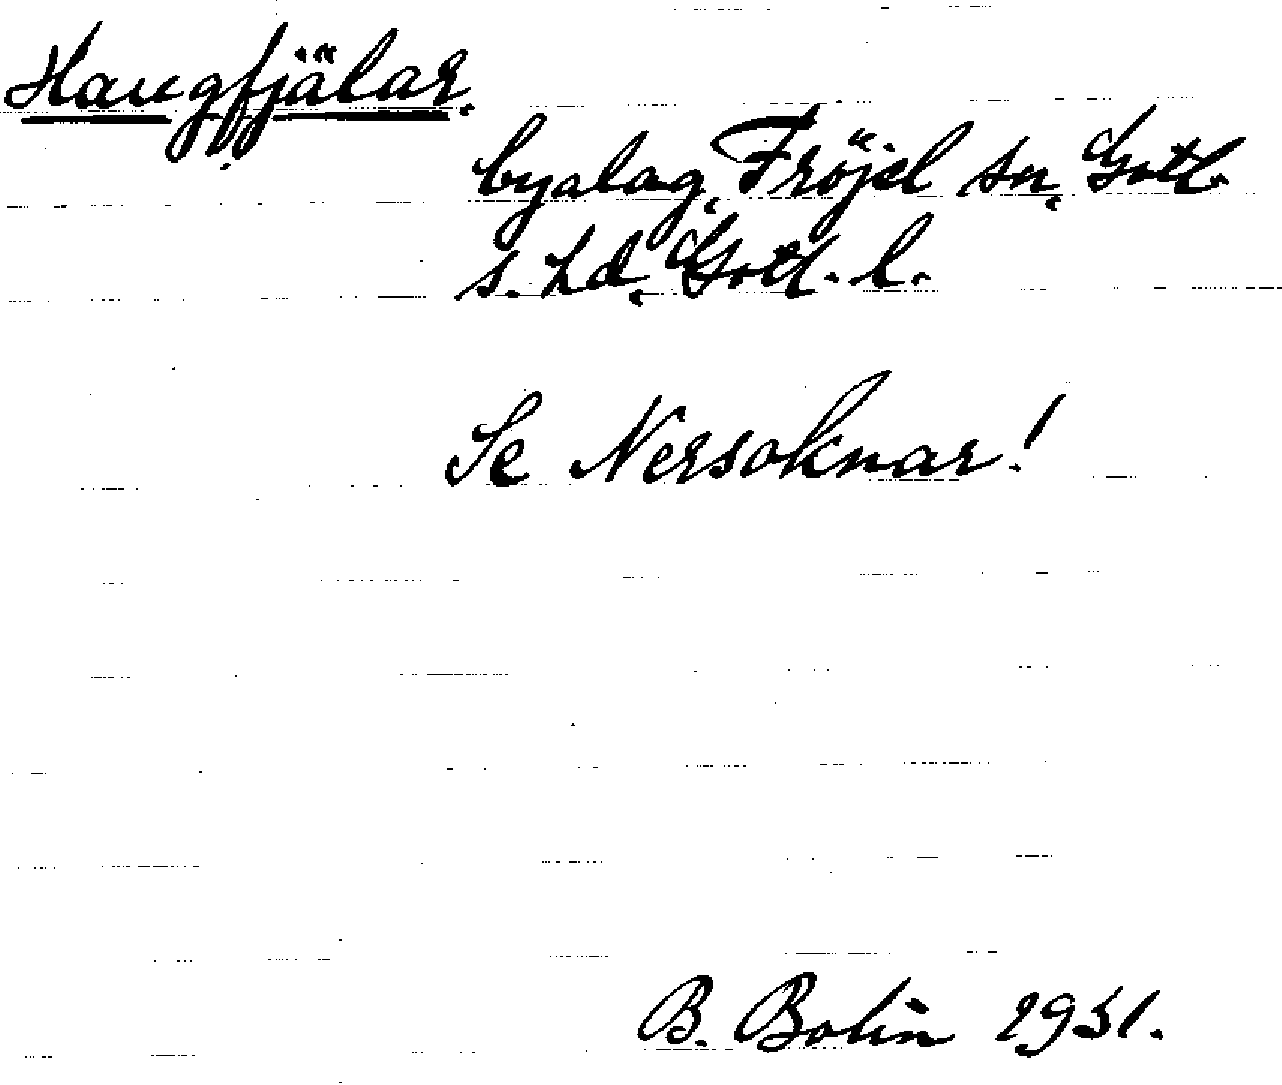 Haugfjälar.
byalag, Fröjel sn, Gotl.
s. hd, Gotl. l.
Se Nersoknar!
B. Bolin 1951.